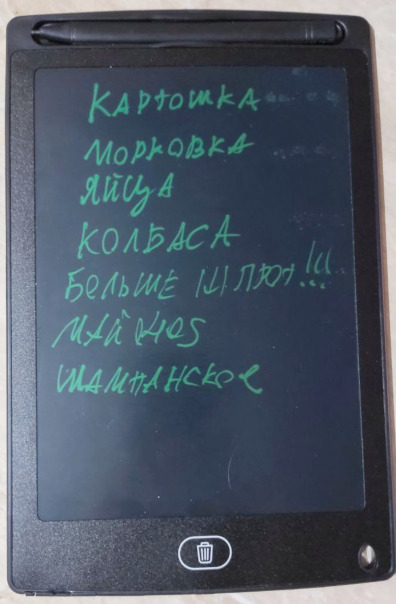 КАРТОШКА
МОРКОВКА
ЯЙЦА
КОЛБАСА
БОЛЬШЕ !!!
МАЙОНЕЗ
ШАМПАНСКОЕ